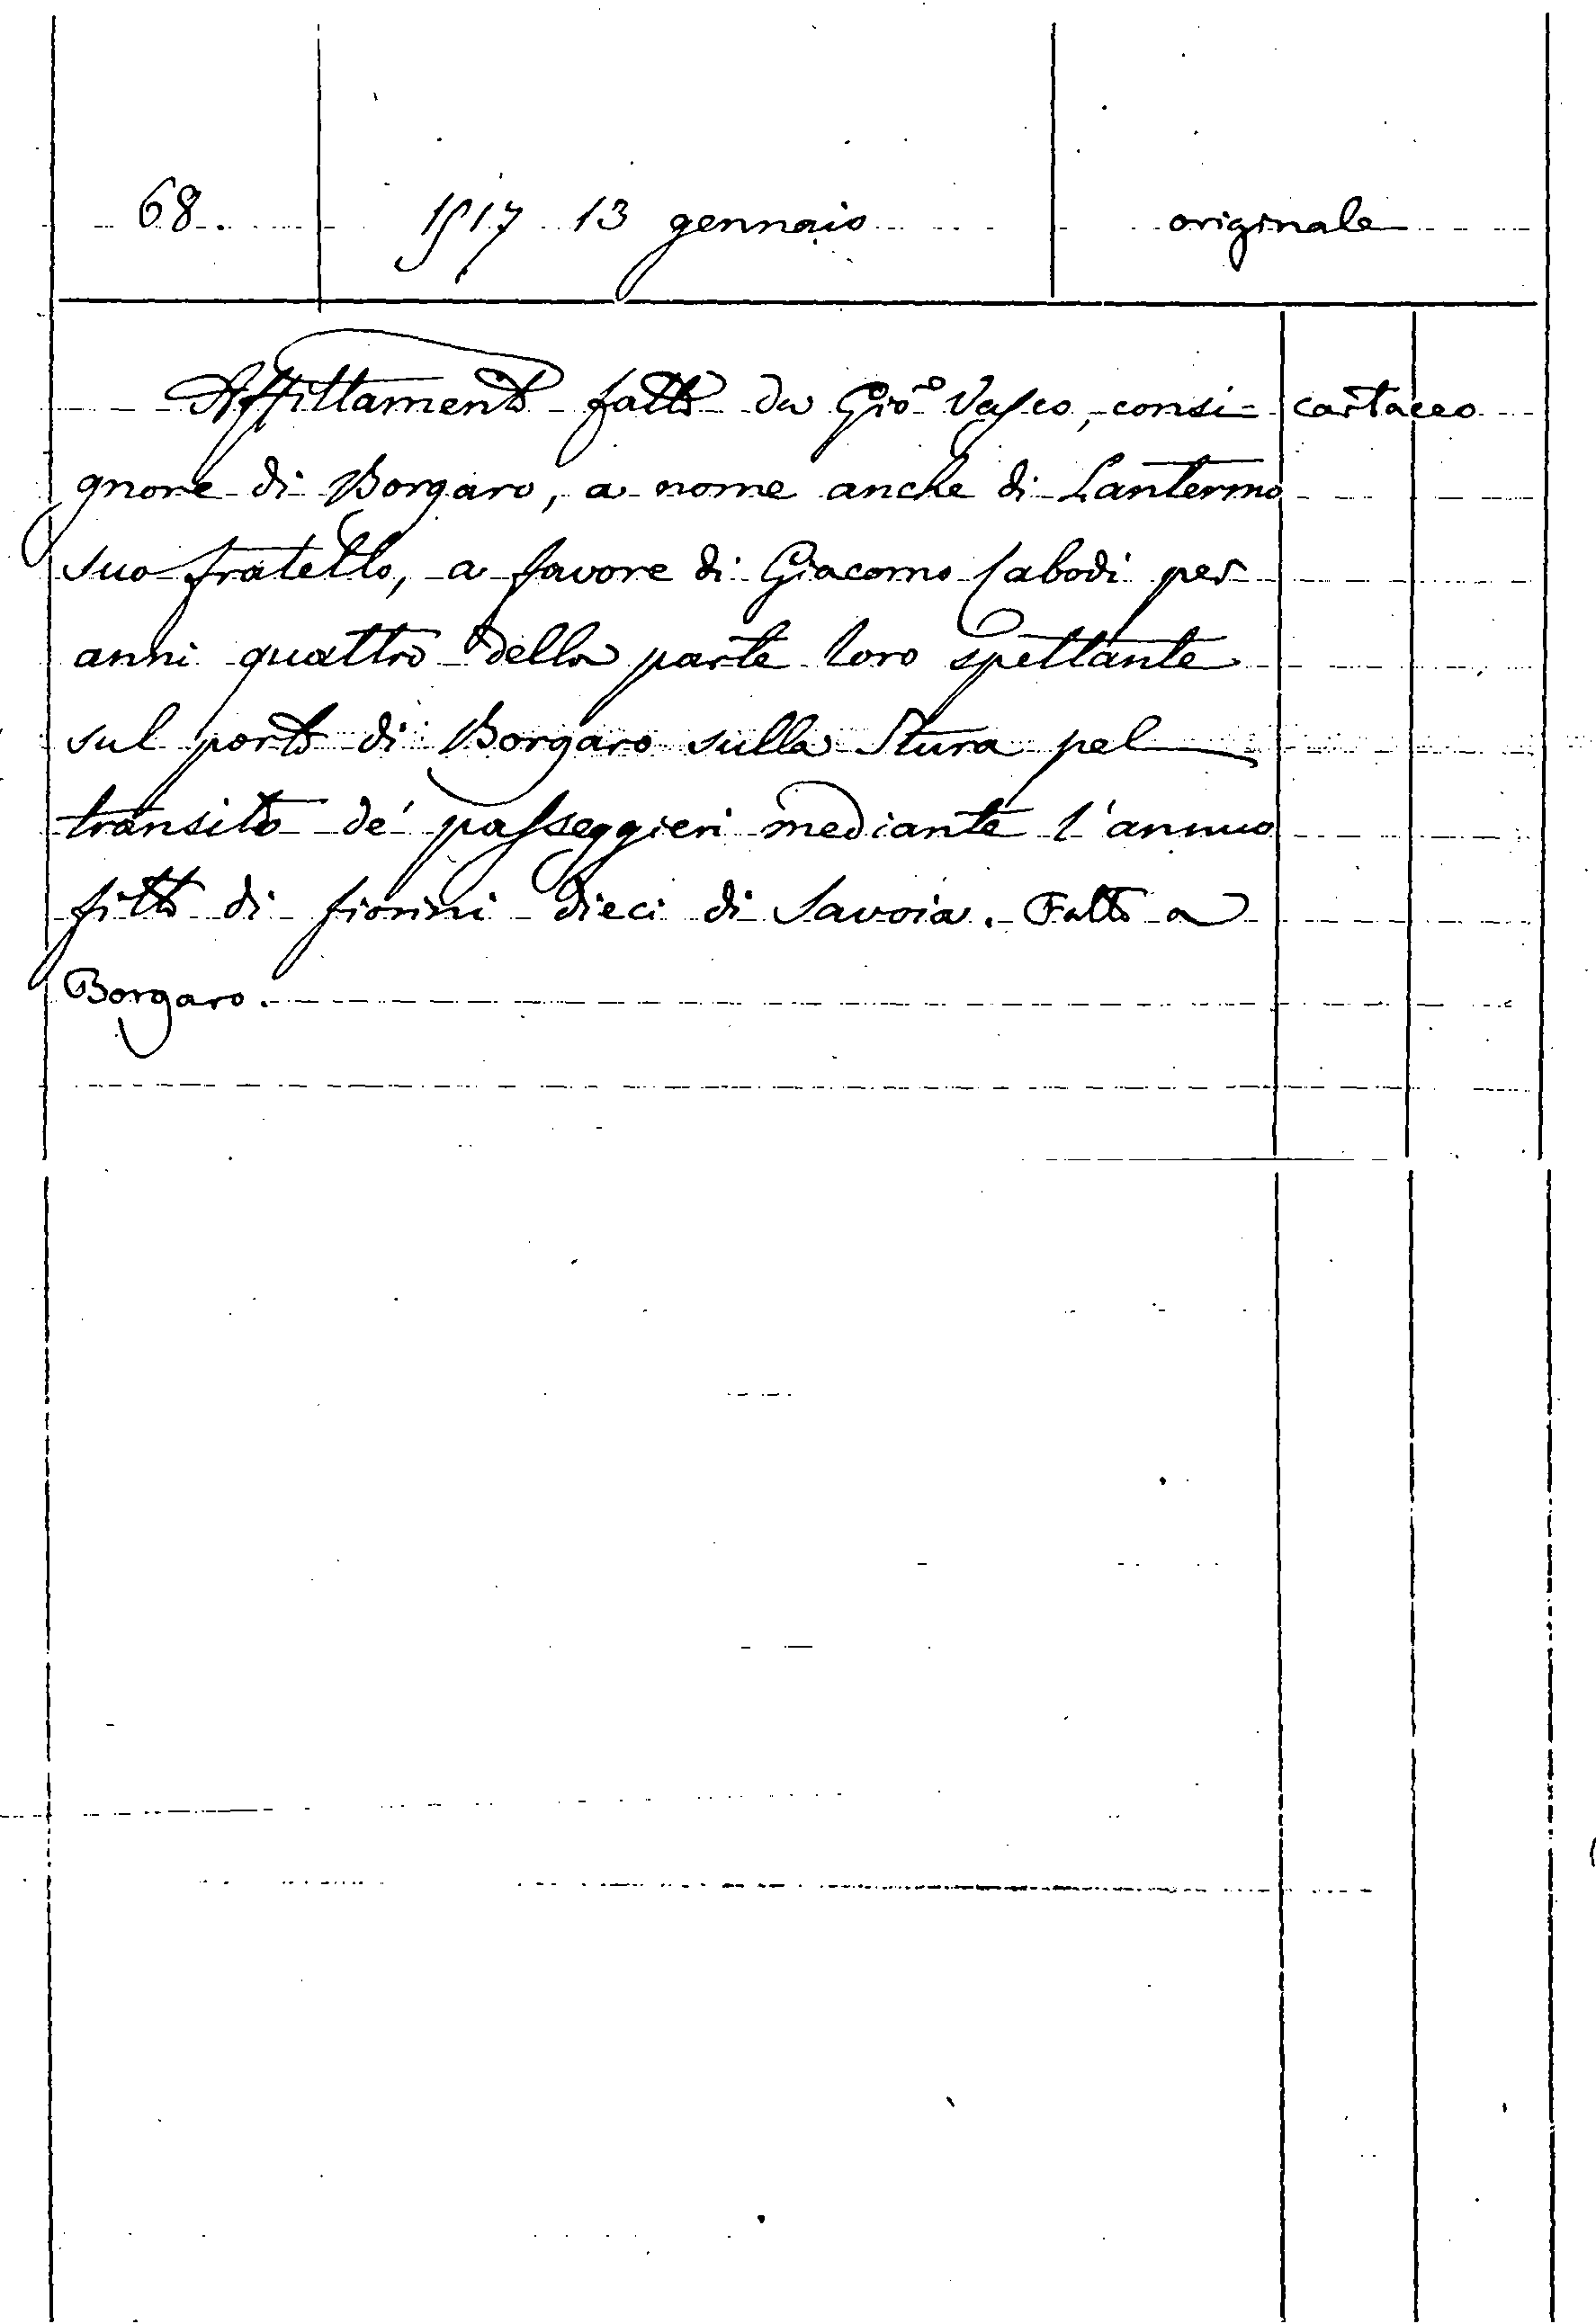 68. 1517 13 gennaio originale
Affittamento fatto da Gio° Vasco, consi- cartaceo
gnore di Borgaro, a nome anche di Lantermo
suo fratello, a favore di Giacomo Cabodi per
anni quattro della parte loro spettante
sul porto di Borgaro sulla Stura pel
transito de' passeggieri mediante l'annuo
fitto di fiorini dieci di Savoia. Fatto a
Borgaro.